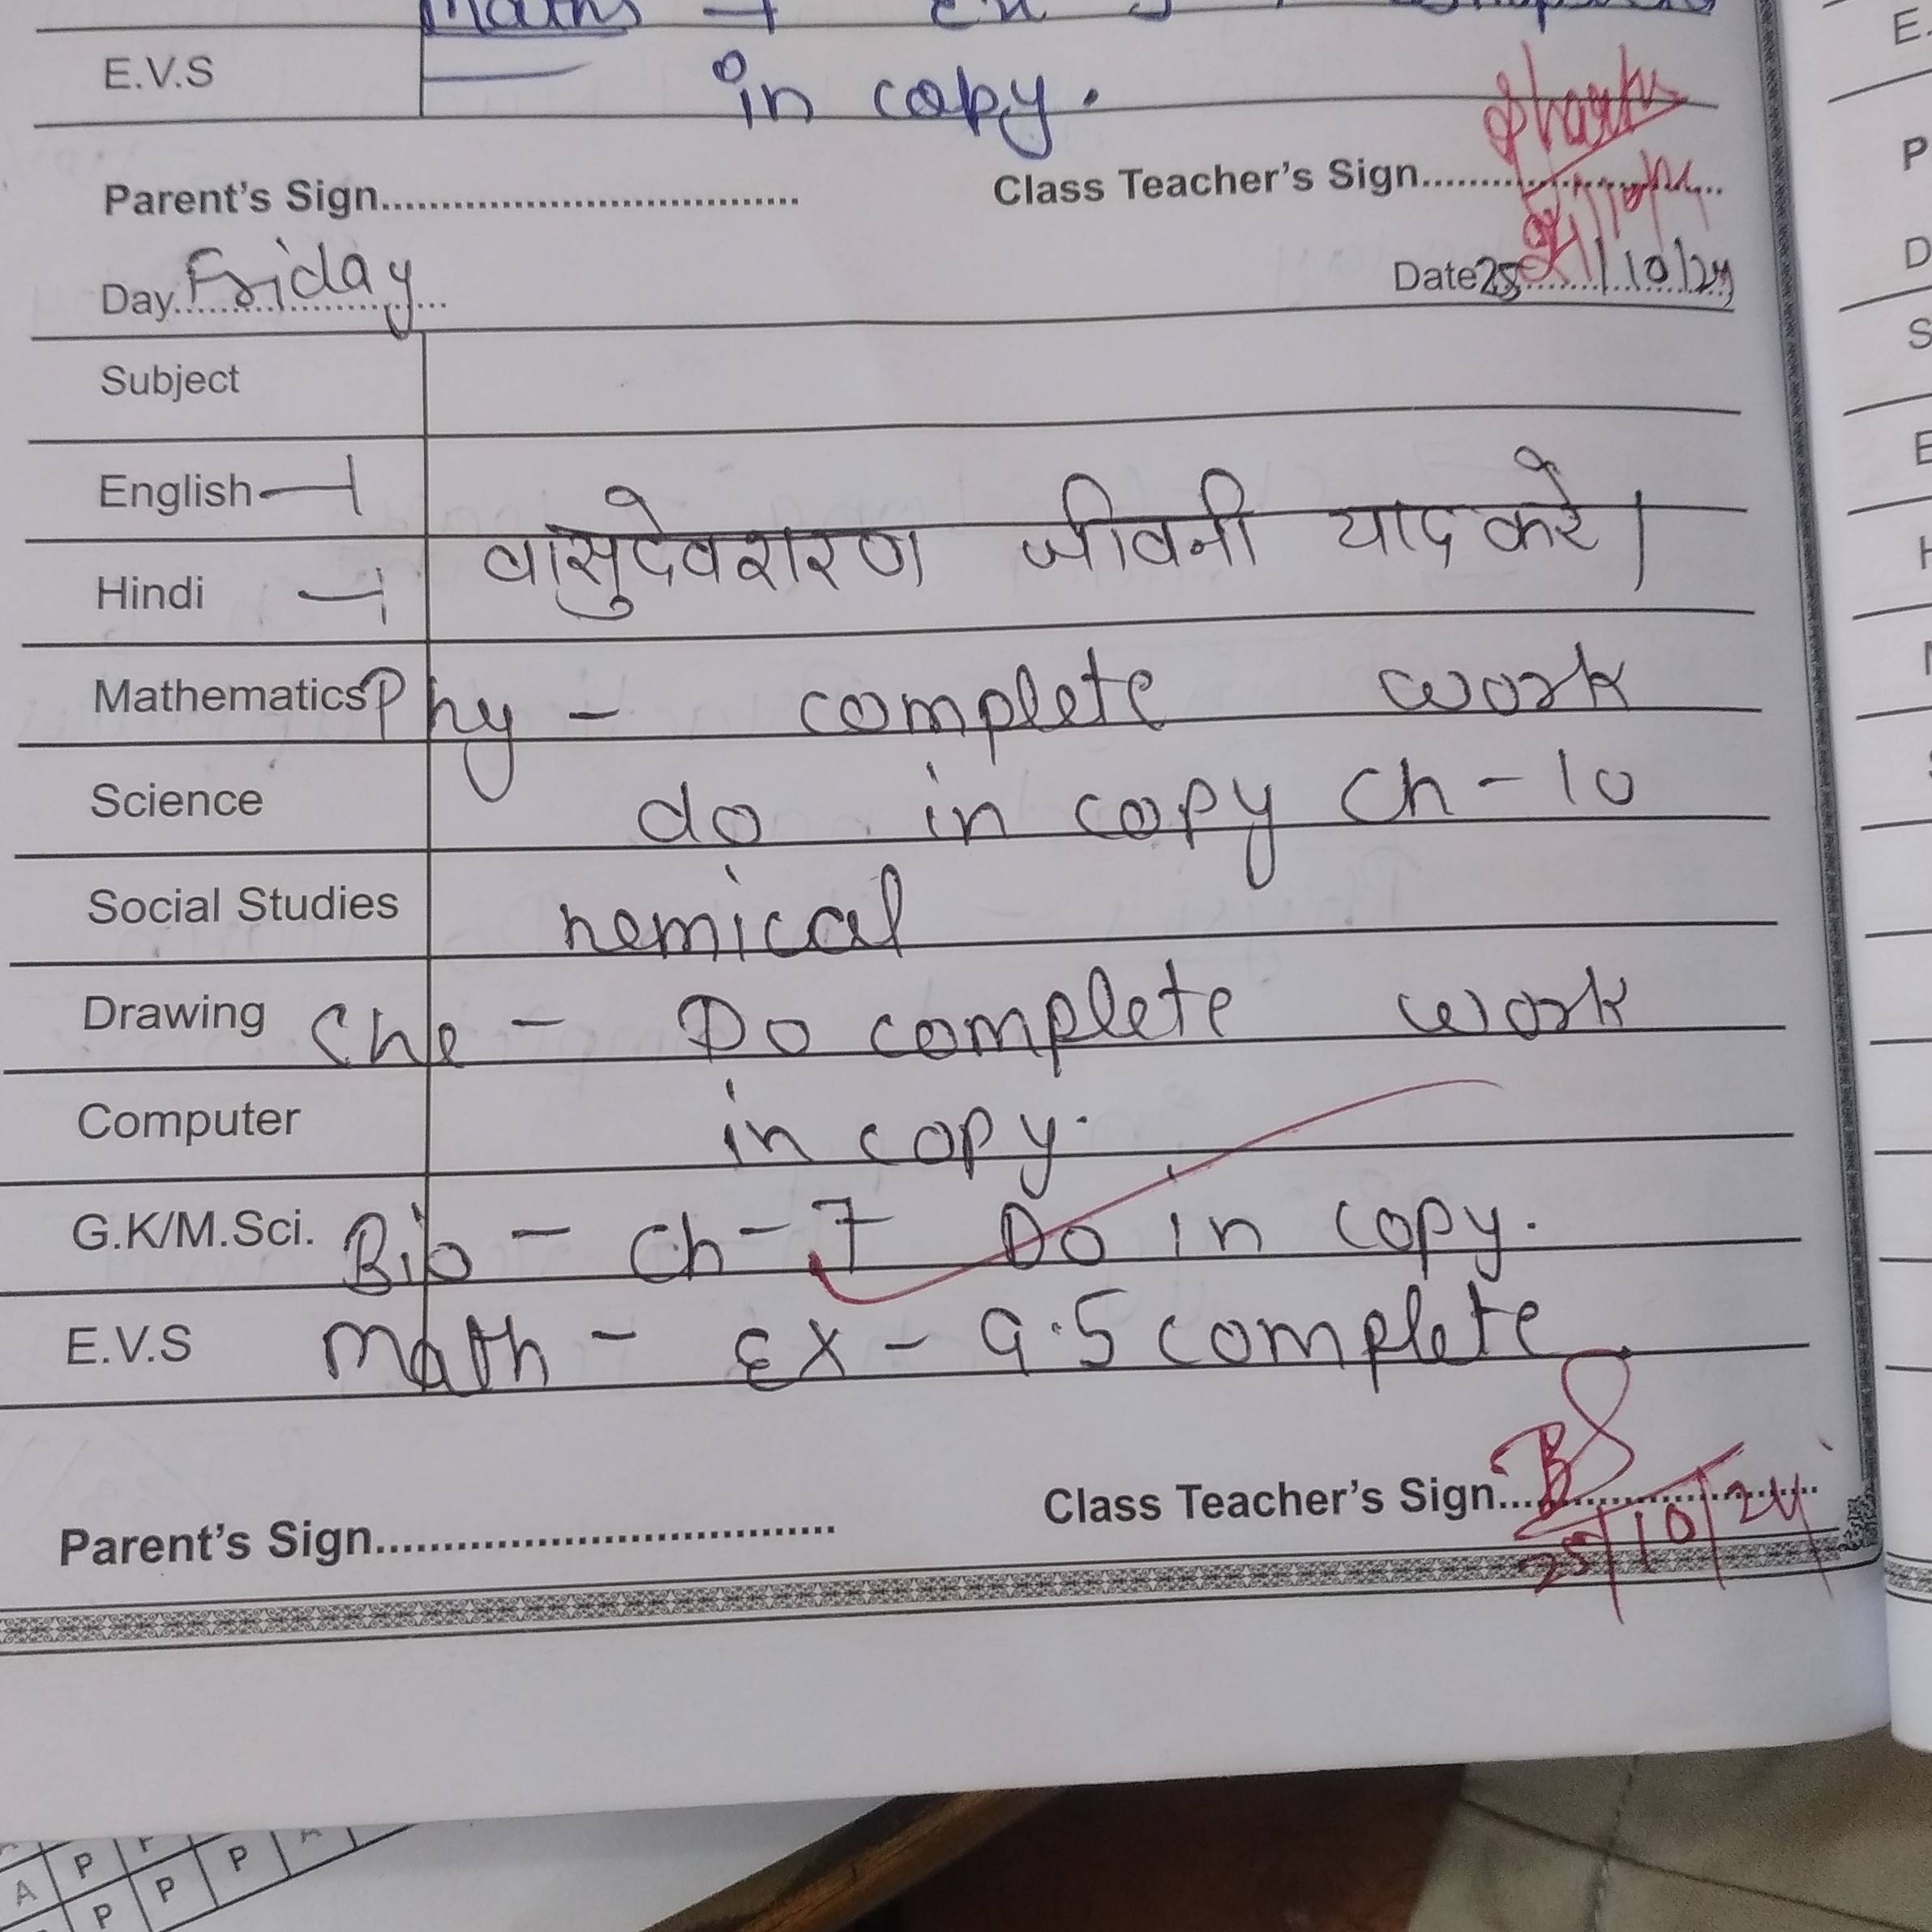 Maths
E.V.S in copy.
Parent's Sign................................... Class Teacher's Sign.........................
Day Friday Date 25/10/24
Subject
English
वासुदेवशरण जीवनी याद करे।
Hindi
Mathematics Phy - complete work
Science do in copy Ch - 10
Social Studies hemical
Drawing Che - Do complete work
Computer in copy.
G.K/M.Sci. Bio - Ch - 7 Do in copy.
E.V.S Math - Ex - 9.5 complete
Class Teacher's Sign......................
Parent's Sign......................................
25/10/24
A P P
P P P